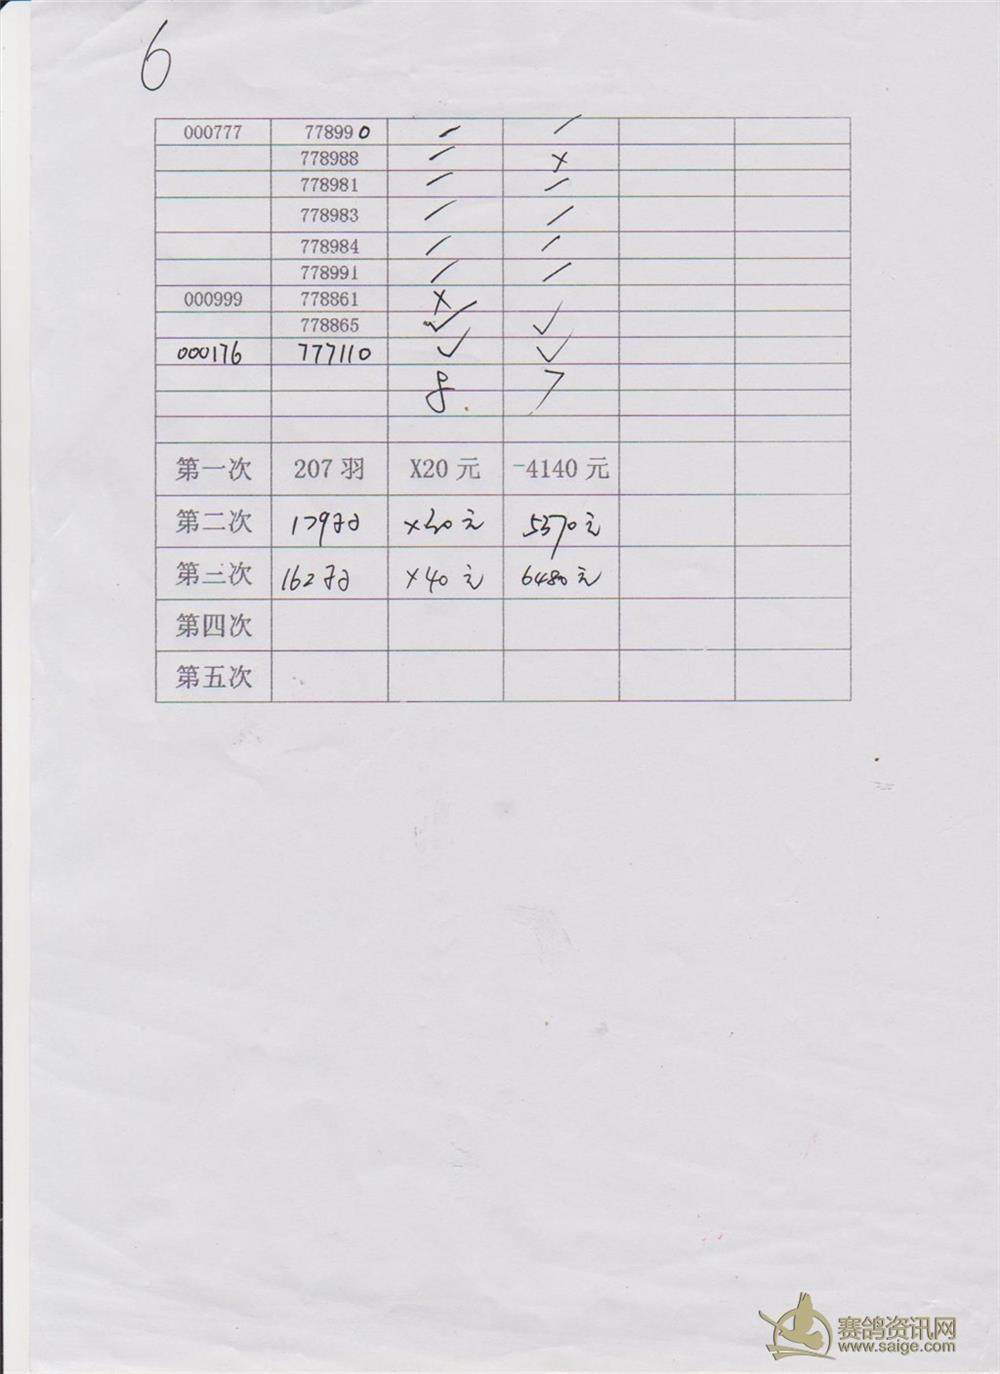 6
000777 778990
778988 ×
778981
778983
778984
778991
000999 778861 ×
778865 ✓ ✓
000176 777110 ✓ ✓
8 7
第一次 207羽 X20元 -4140元
第二次 179羽 ×30元 5370元
第三次 162羽 ×40元 6480元
第四次
第五次
赛鸽资讯网
www.saige.com